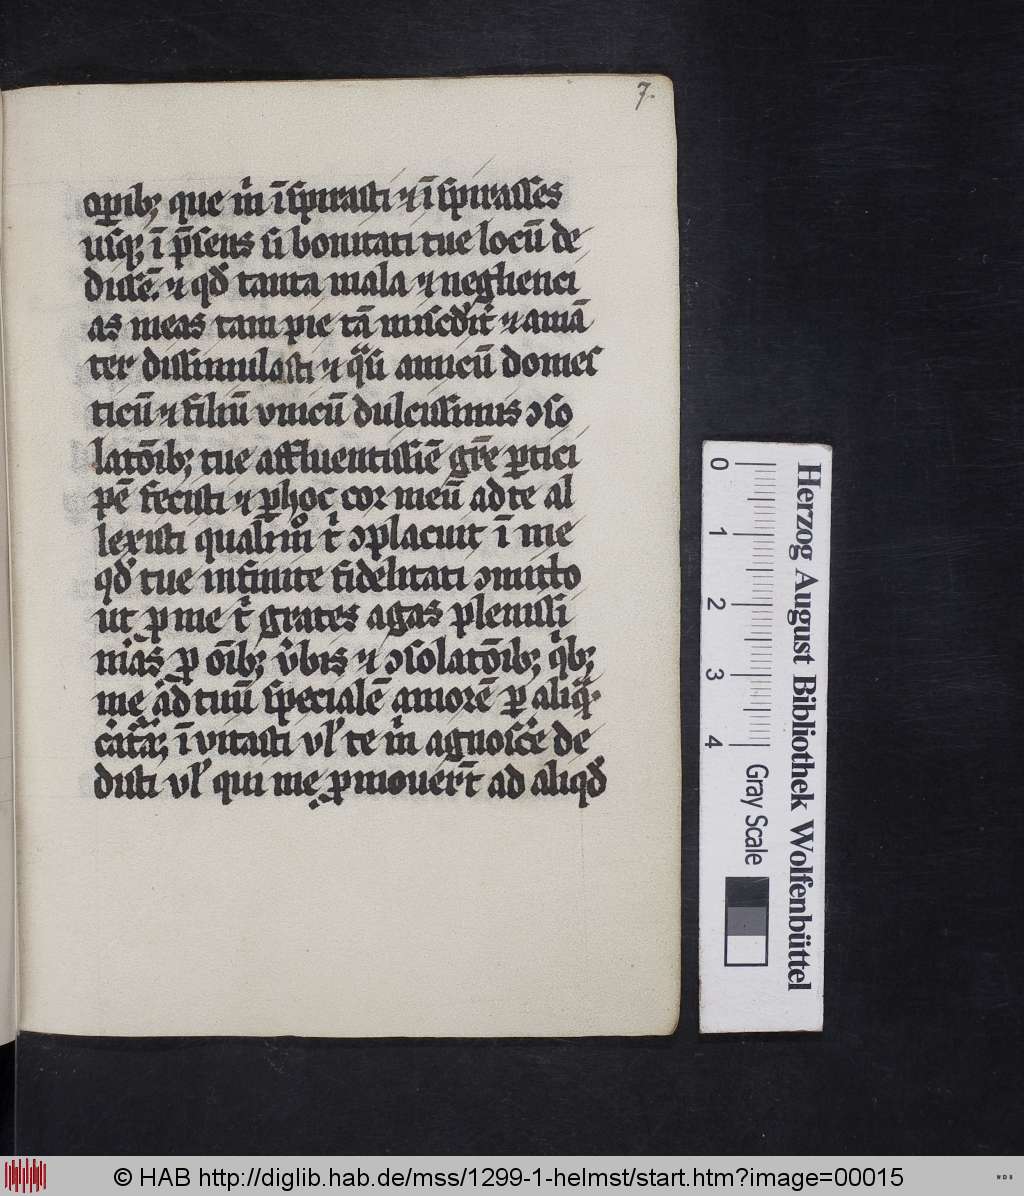 7.
op̲ib; que m̄ īspirasti ⁊ īspirasses
usq; ī p̄sens si bonitati tue locū de
dissē. ⁊ qd̕ tanta mala ⁊ neghenci
as meas tam pie tā misc̕dit̕ ⁊ amā
ter dissimulasti ⁊ qͣsi amicū domes
ticū ⁊ filiū vnicū dulcissimis ↄso
latōib; tue affluentissiē gr̄e ꝑtici
pē fecisti ⁊ ꝑ hoc cor meū ad te al
lexisti qualīmº t̕ ↄplacuit ī me
qd̕ tue infinite fidelitati ↄmitto
ut ꝓ me t̕ grates agas plenissi
mas ꝓ oīb; v̕bis ⁊ ↄsolatōib; qͥb;
me ad tuū specialē amorē ꝑ aliqͣ
īvitasti vl̕ te m̕ agnosc̕e de
disti vl̕ qui me ꝓmouer̄t ad aliqd̕
Herzog August Bibliothek Wolfenbüttel
0 1 2 3 4
Gray Scale
© HAB http://diglib.hab.de/mss/1299-1-helmst/start.htm?image=00015